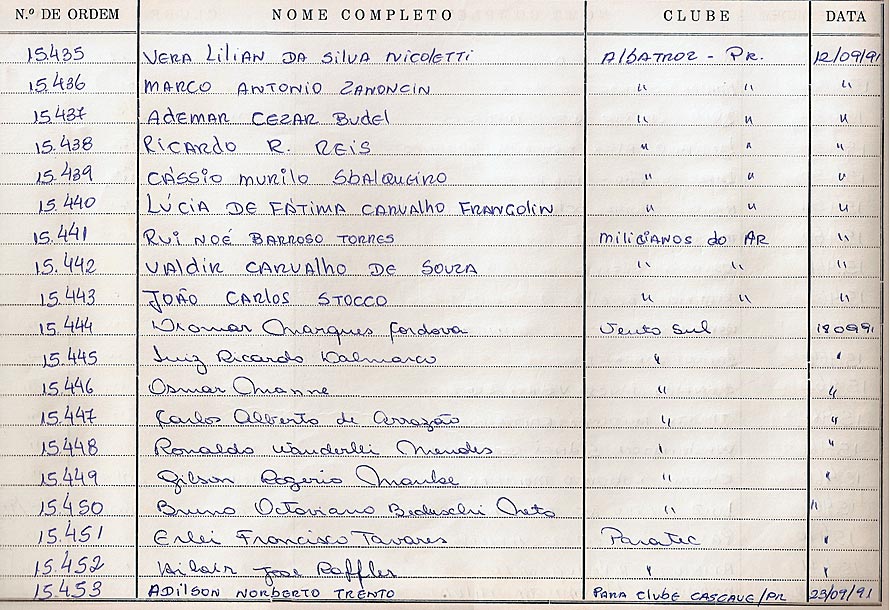 N.º DE ORDEM NOME COMPLETO CLUBE DATA
15.435 VERA LILIAN DA SILVA NICOLETTI ALBATROZ - PR. 12/09/91
15.436 MARCO ANTONIO ZANONCIN " " "
15.437 ADEMAR CEZAR BUDEL " " "
15.438 RICARDO R. REIS " " "
15.439 CÁSSIO MURILO SBALQUEIRO " " "
15.440 LÚCIA DE FÁTIMA CARVALHO FRANGOLIN " " "
15.441 RUI NOÉ BARROSO TORRES MILICIANOS do AR "
15.442 VALDIR CARVALHO DE SOUZA " " "
15.443 JOÃO CARLOS STOCCO " " "
15.444 Marques Cordova Vento Sul 180991
15.445 Luiz Ricardo Dalmarco " "
15.446 Osmar " "
15.447 Carlos Alberto de Arrazão " "
15.448 Ronaldo Wanderlei Mendes " "
15.449 Gilson Rogerio " "
15.450 Bruno Octaviano Neto " "
15.451 Erlei Francisco Tavares Paratec "
15.452 Jose Raffler " "
15.453 ADILSON NORBERTO TRENTO PARA CLUBE CASCAVEL/PR 23/09/91